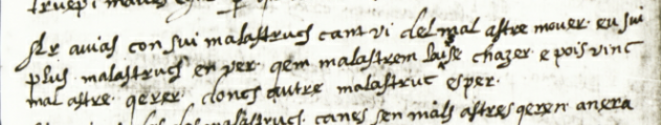 Ar auias con sui malastrucs cant vi del mal astre mouer. eu sui
plus malastrucs en ver. qem malastrem laise chazer. e pois vinc
mal astre qerer. doncs autre malastruc esper.
malastrucs. canes sen mals astres qeren anera